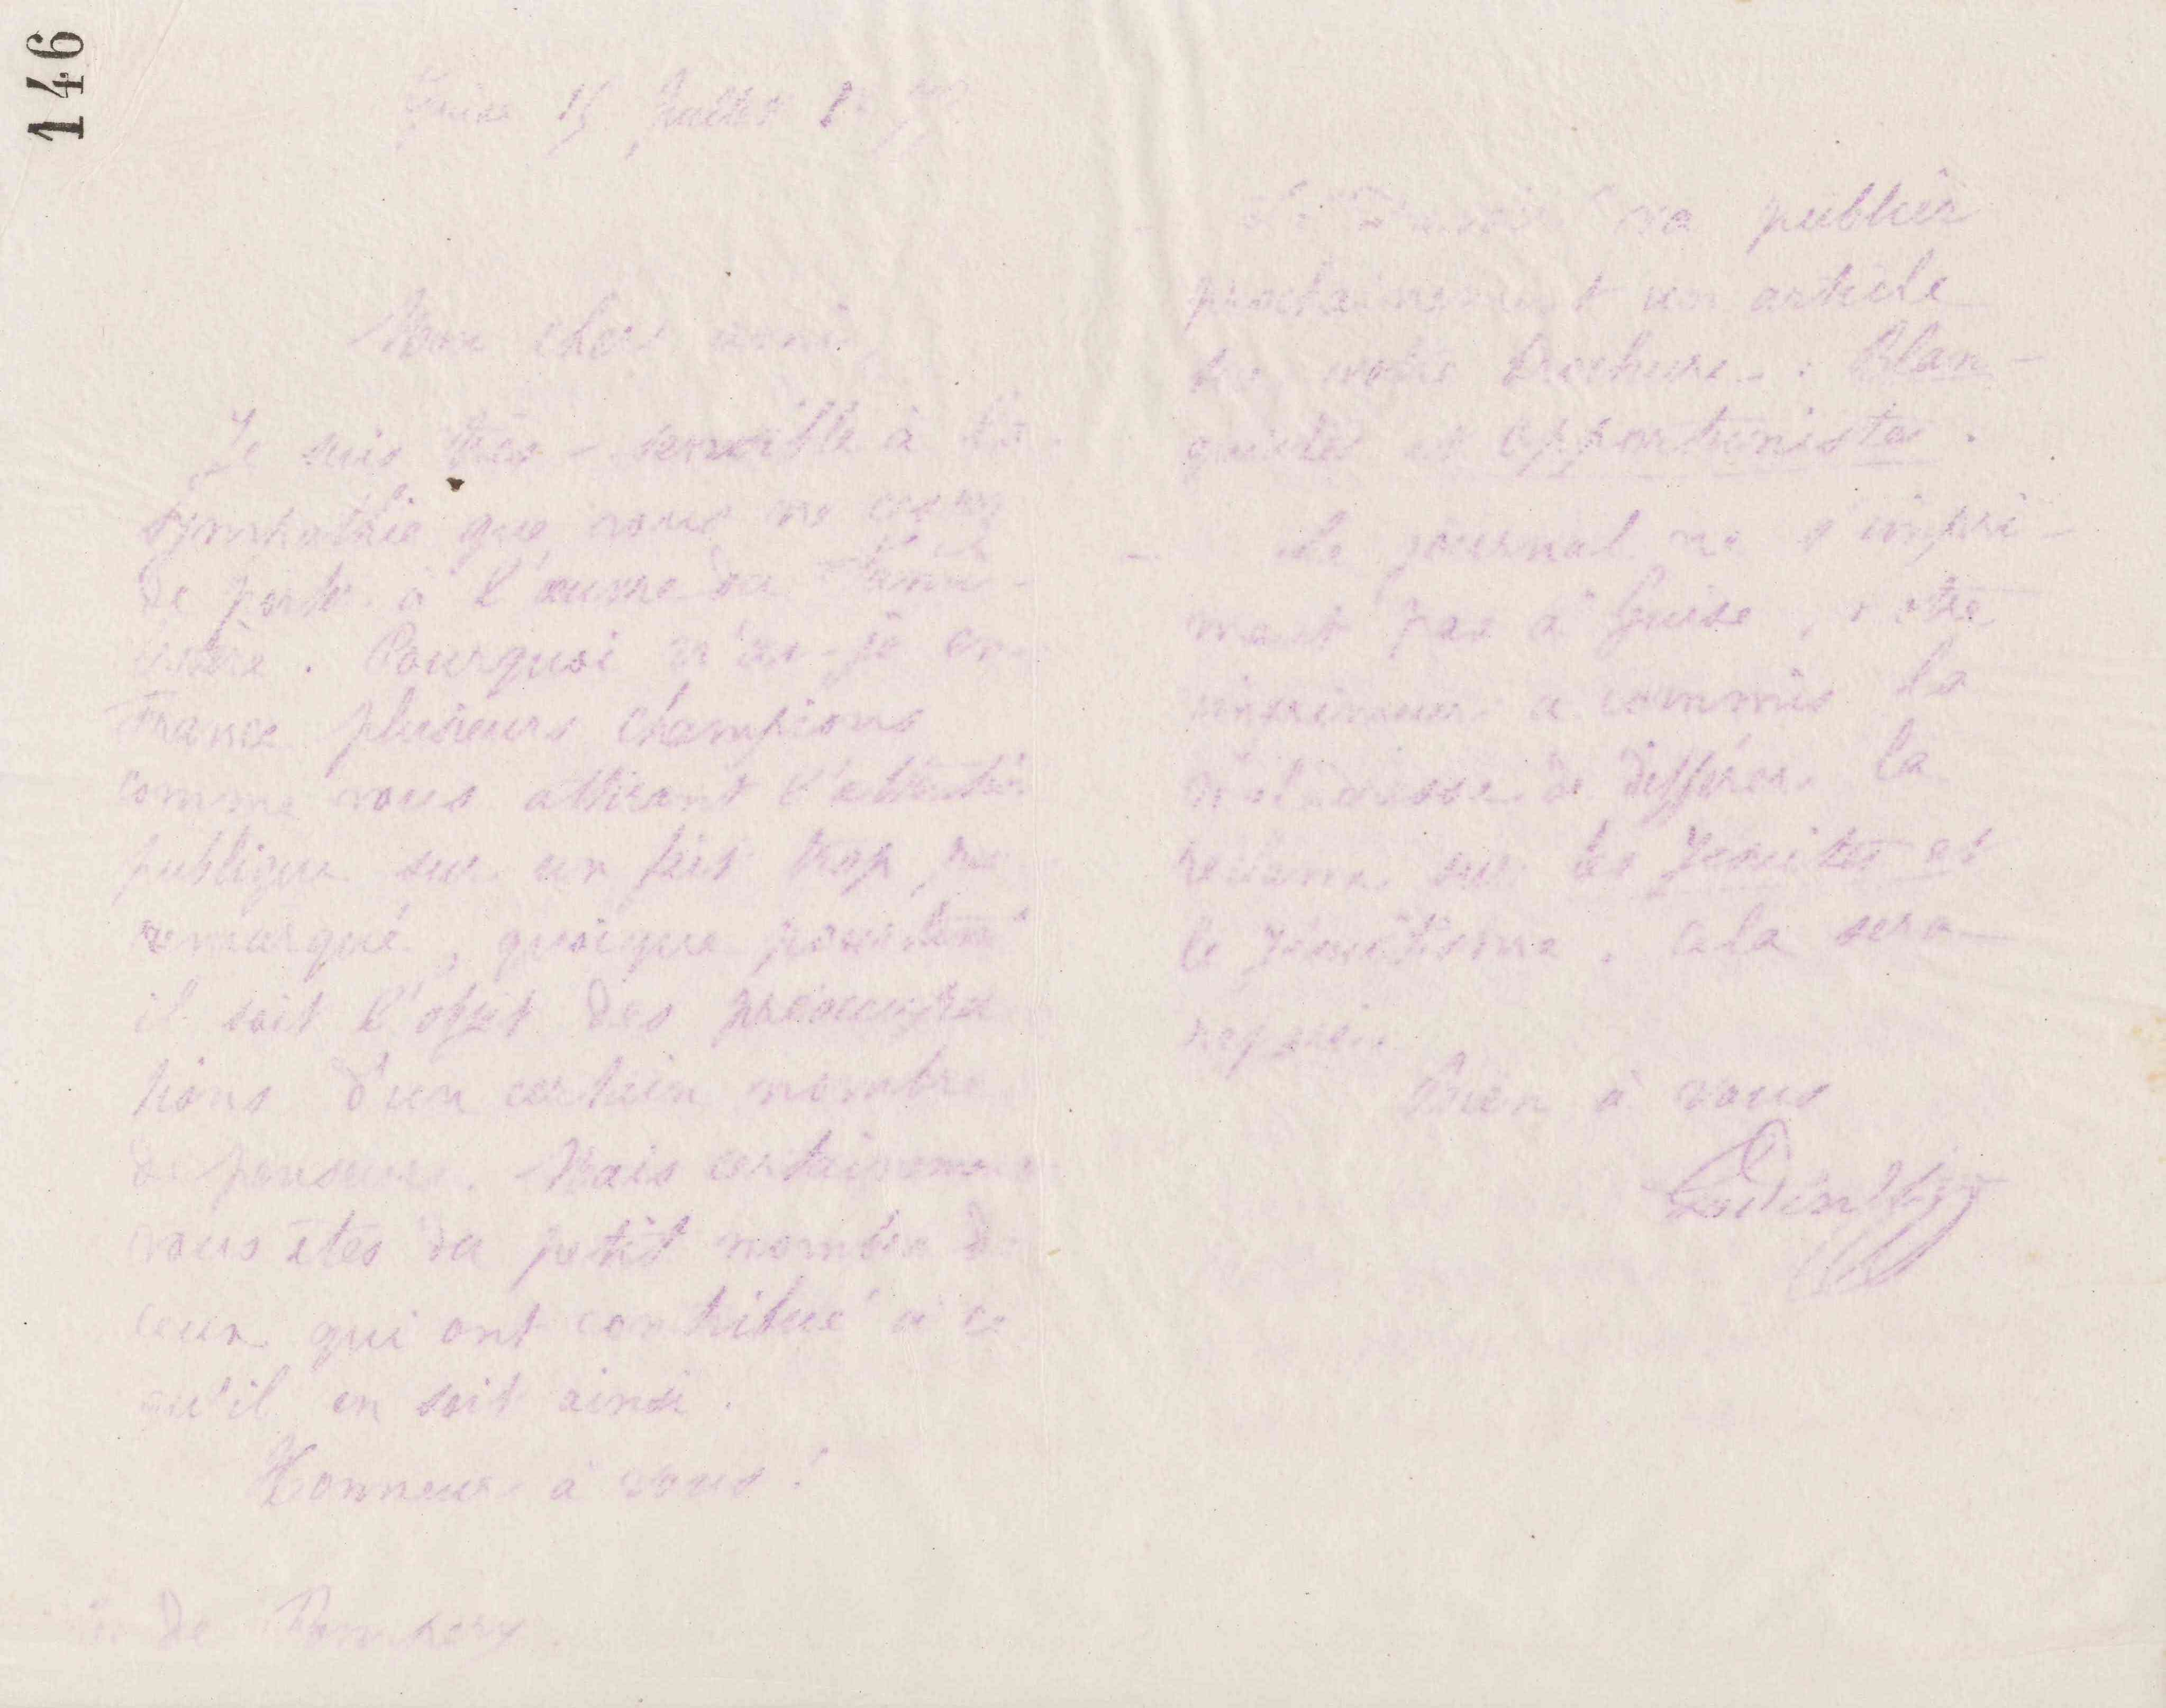 146
Guise 15 Juillet
Mon cher ami,
Je suis très-sensible à la
sympathie que vous ne cessez
de porter à l'œuvre du Fami-
listère. Pourquoi n'ai-je en
France plusieurs champions
comme vous attirant l'attention
publique sur un fait trop peu
remarqué, quoique pourtant
il soit l'objet des préoccupa
tions d'un certain nombre
de penseurs. Mais certainement
vous êtes du petit nombre de
ceux qui ont contribué à ce
qu'il en soit ainsi.
Honneur à vous !
de Pompery
Le Devoir va publier
prochainement un article
sur votre brochure : Blan-
quistes et opportunistes.
Le journal ne s'impri-
mant pas à Guise, notre
imprimeur a commis la
maladresse de différer la
réclame sur les Jésuites et
le Jésuitisme. Cela sera
réparé.
Bien à vous
Godin